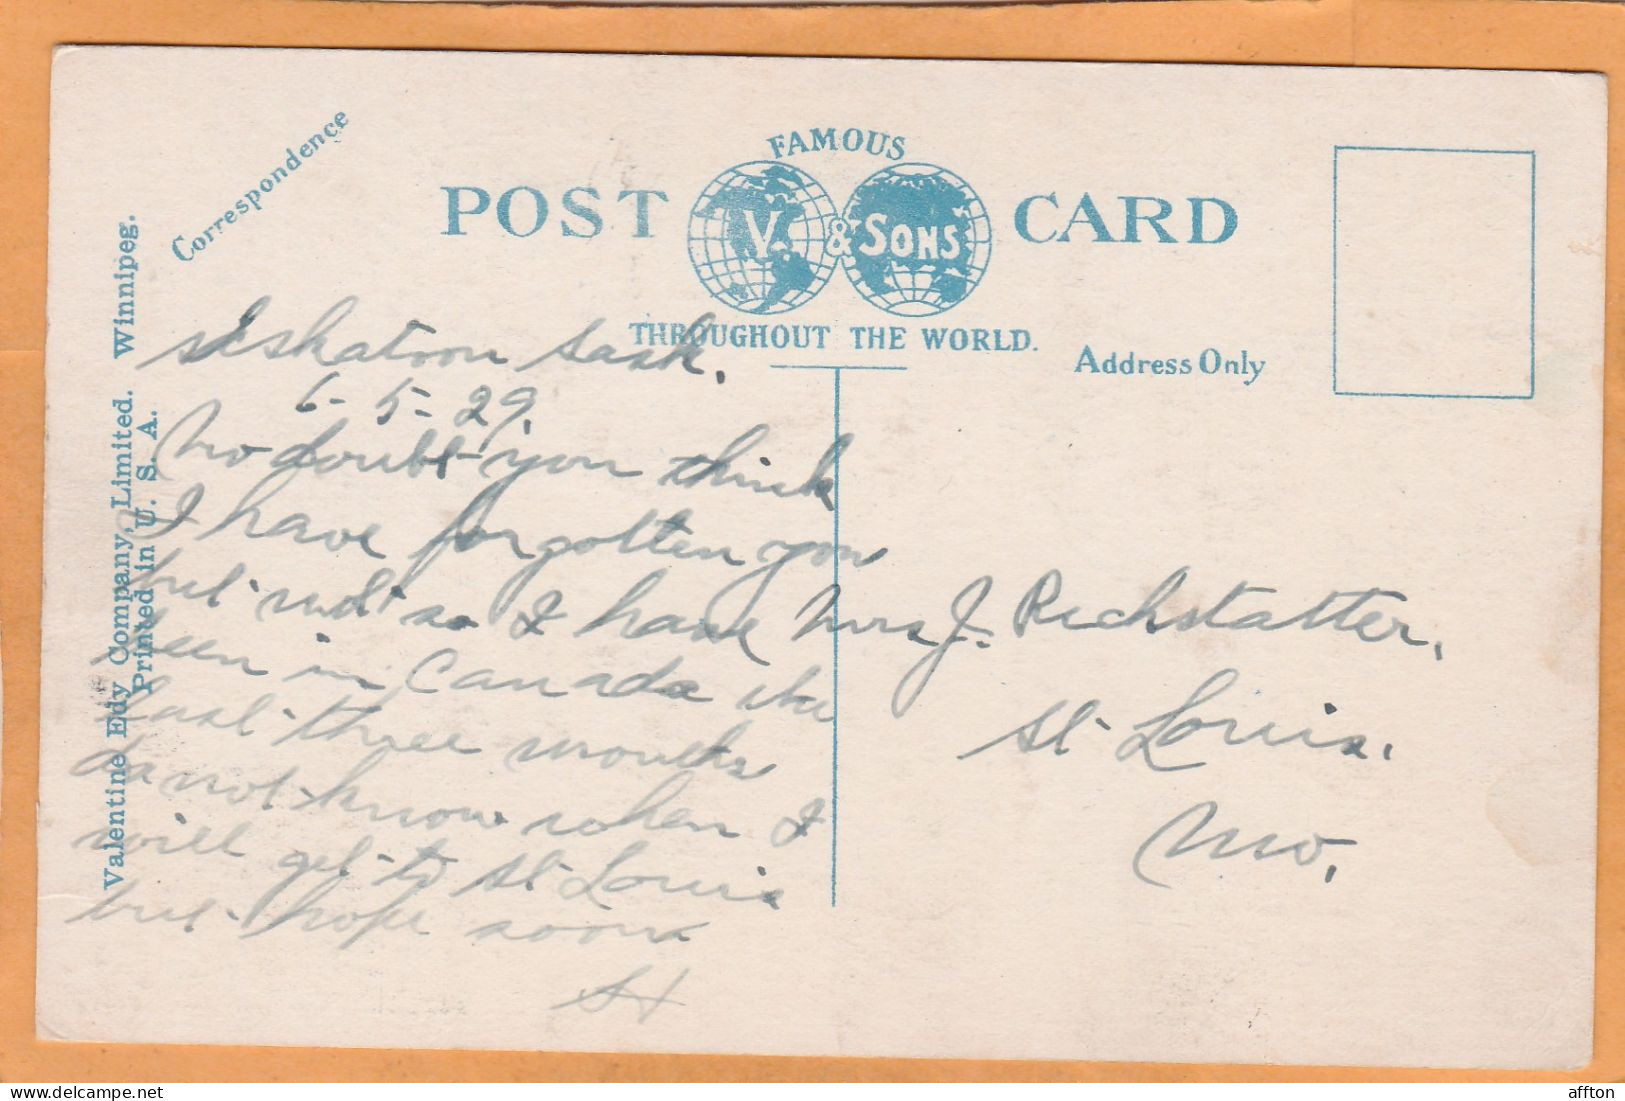 Correspondence
FAMOUS
POST CARD
V. & SONS
THROUGHOUT THE WORLD.
Address Only
Valentine Edy Company, Limited. Winnipeg.
Printed in U. S. A.
Sask.
6-5-29.
No doubt you think
I have forgotten you
but not so I have
been in Canada the
last three months
do not know when I
will get to St Louis
but hope soon
Mrs J. Richstatter,
St Louis.
Mo.
affton